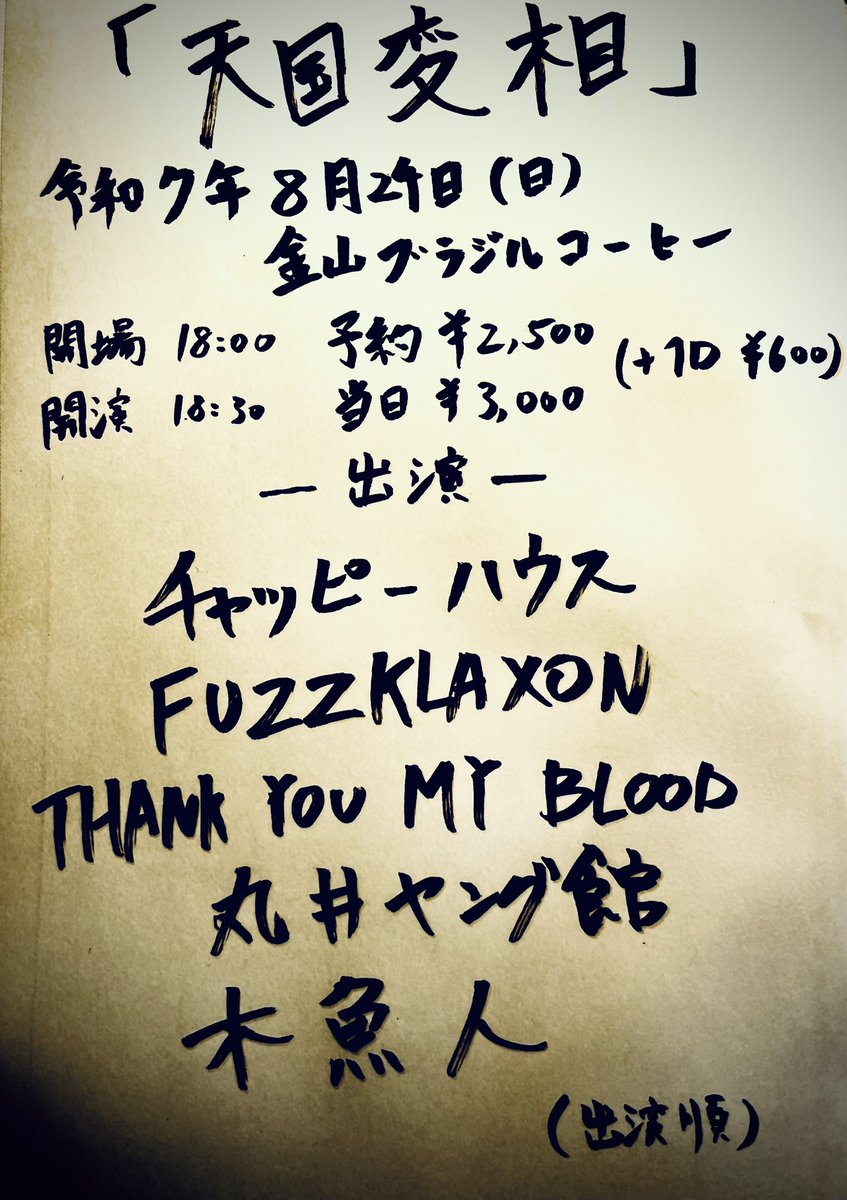 「天国変相」
令和7年 8月24日(日)
金山ブラジルコーヒー
開場 18:00 予約 ¥2,500 (+1D ¥600)
開演 18:30 当日 ¥3,000
―出演―
チャッピーハウス
FUZZKLAXON
THANK YOU MY BLOOD
丸井ヤング館
木魚人
(出演順)